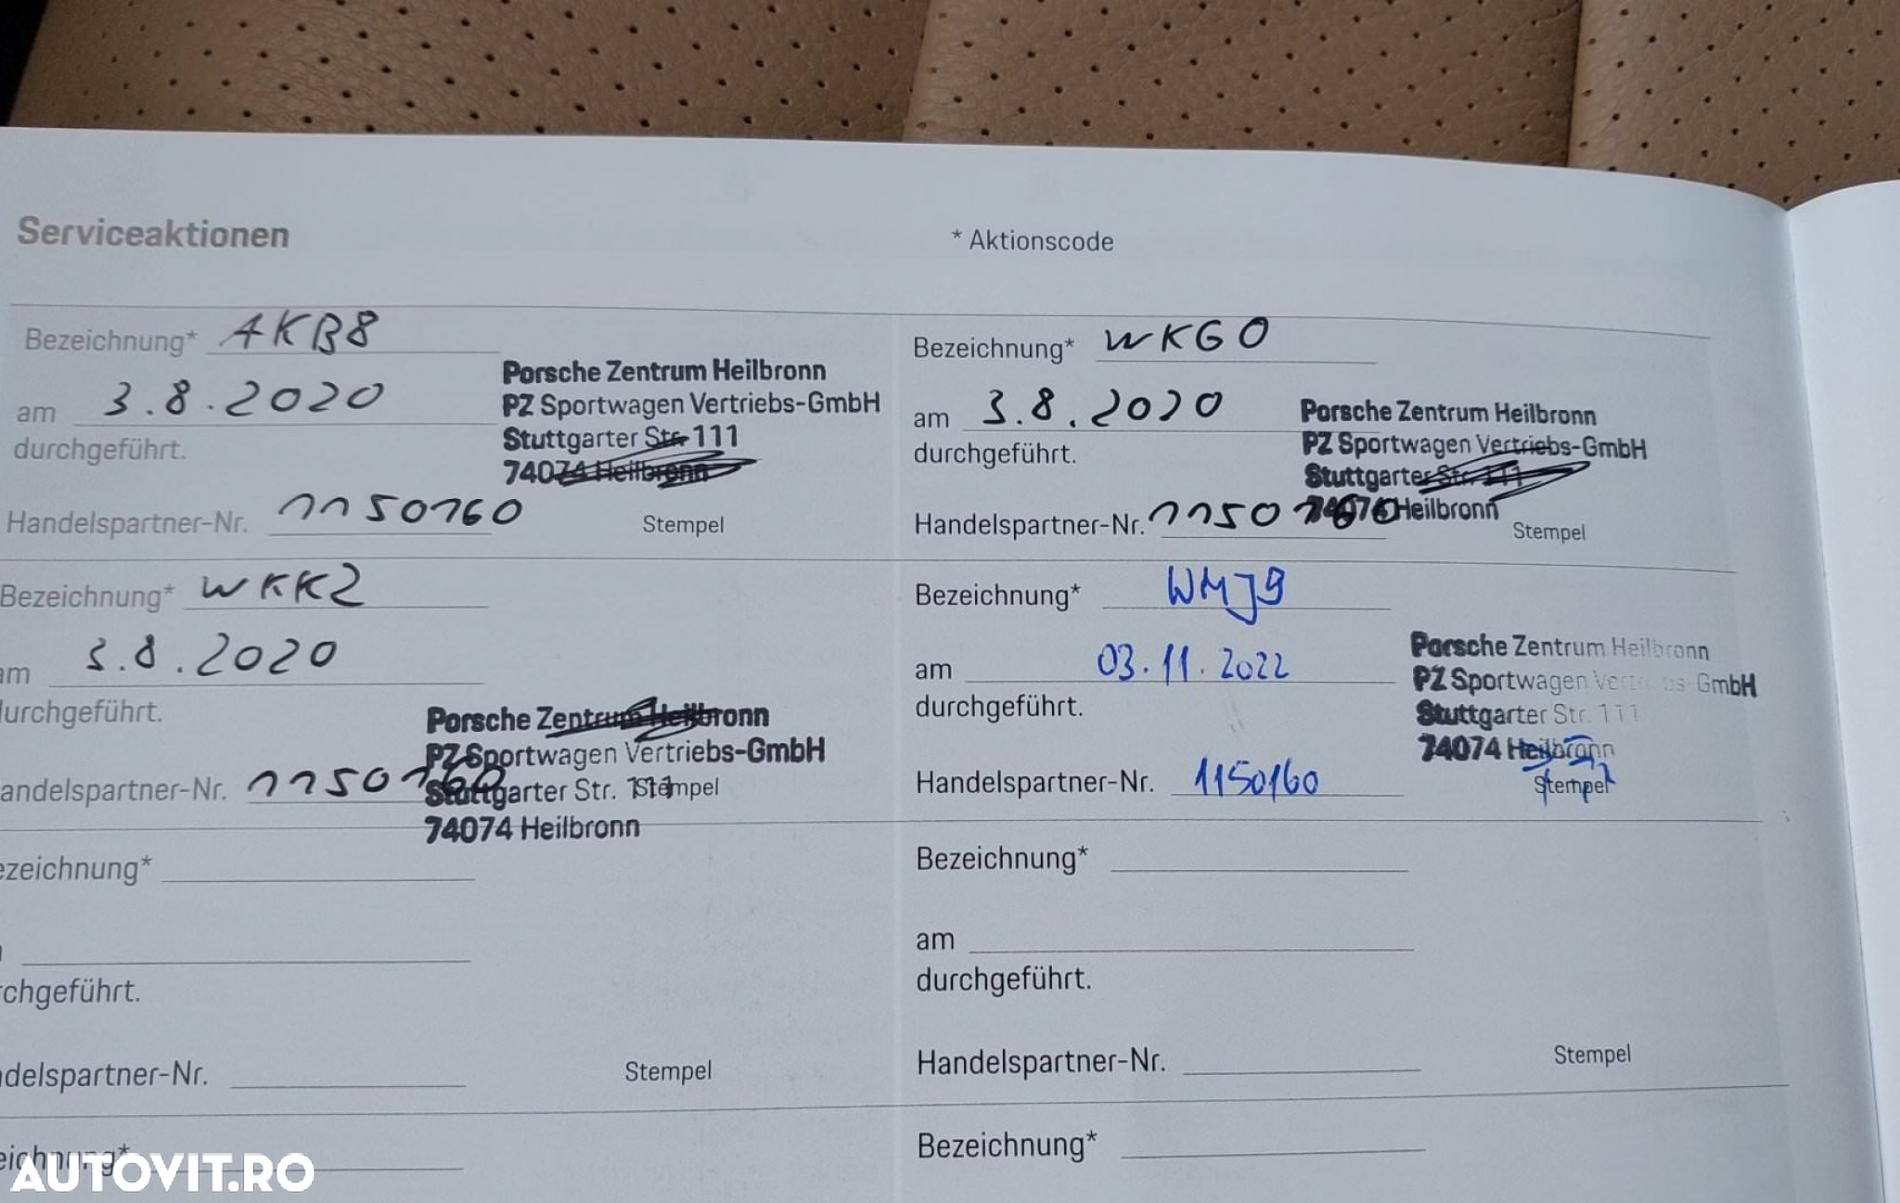 Serviceaktionen
* Aktionscode
Bezeichnung* AKB8
am 3.8.2020
durchgeführt.
Porsche Zentrum Heilbronn
PZ Sportwagen Vertriebs-GmbH
Stuttgarter Str. 111
74074 Heilbronn
Handelspartner-Nr. 1150160
Stempel
Bezeichnung* WKG0
am 3.8.2020
durchgeführt.
Porsche Zentrum Heilbronn
PZ Sportwagen Vertriebs-GmbH
Stuttgarter Str. 111
74074 Heilbronn
Handelspartner-Nr. 1150160
Stempel
Bezeichnung* WKK2
am 3.8.2020
durchgeführt.
Porsche Zentrum Heilbronn
PZ Sportwagen Vertriebs-GmbH
Stuttgarter Str. 111
74074 Heilbronn
andelspartner-Nr. 1150160
Stempel
Bezeichnung* WMJ9
am 03.11.2022
durchgeführt.
Porsche Zentrum Heilbronn
PZ Sportwagen Vertriebs-GmbH
Stuttgarter Str. 111
74074 Heilbronn
Handelspartner-Nr. 1150160
Stempel
ezeichnung*
chgeführt.
delspartner-Nr.
Stempel
Bezeichnung*
am
durchgeführt.
Handelspartner-Nr.
Stempel
eichnung*
Bezeichnung*
AUTOVIT.RO